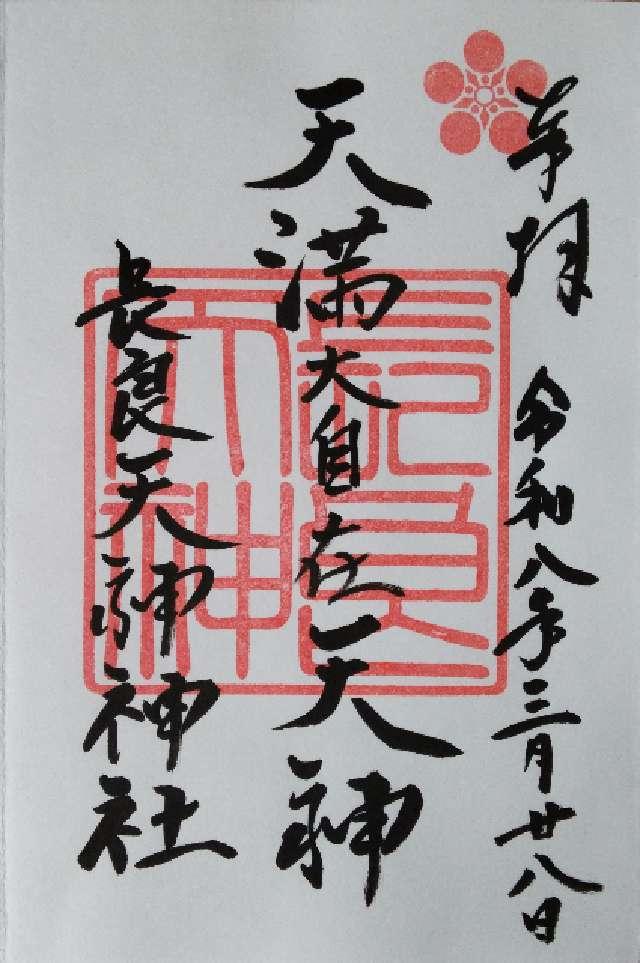 奉拝 令和八年三月廿八日
天満大自在天神
長良天神神社
長良天神